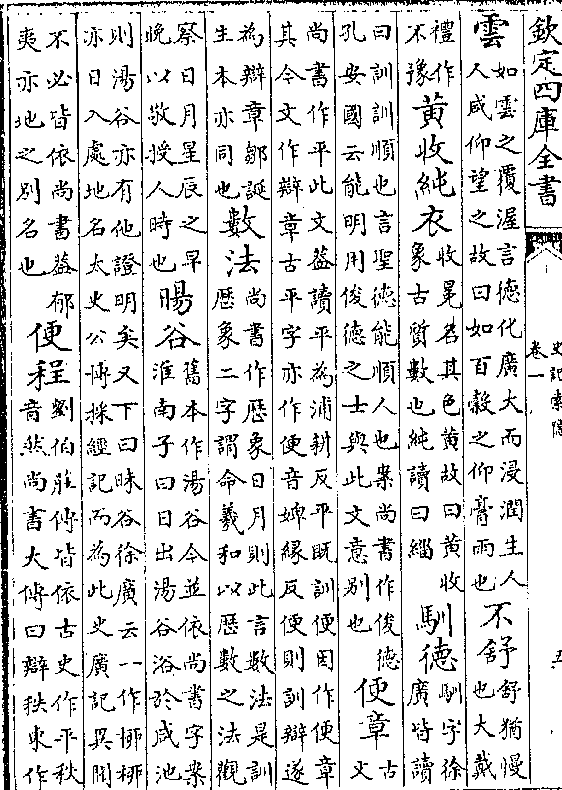 欽定四庫全書
史記索隱
卷一
五
雲
如雲之覆渥言德化廣大而浸潤生人
人咸仰望之故曰如百穀之仰膏雨也
不舒
舒猶慢
也大戴
禮作
不豫
黃收純衣
收冕名其色黃故曰黃收
象古質數也純讀曰緇
馴德
馴字徐
廣皆讀
曰訓訓順也言聖德能順人也案尚書作俊德
孔安國云能明用俊德之士與此文意别也
便章
古
文
尚書作平此文葢讀平為浦耕反平既訓便因作便章
其今文作辯章古平字亦作便音婢緣反便則訓辯遂
為辯章鄒誕
生本亦同也
數法
尚書作厯象日月則此言數法是訓
厯象二字謂命羲和以厯數之法觀
察日月星辰之早
晚以敬授人時也
暘谷
舊本作湯谷今並依尚書字案
淮南子曰日出湯谷浴於咸池
則湯谷亦有他證明矣又下曰昧谷徐廣云一作栁栁
亦日入處地名太史公博採經記而為此史廣記異聞
不必皆依尚書葢郁
夷亦地之别名也
便程
劉伯莊傳皆依古史作平秩
音然尚書大傳曰辯秩東作